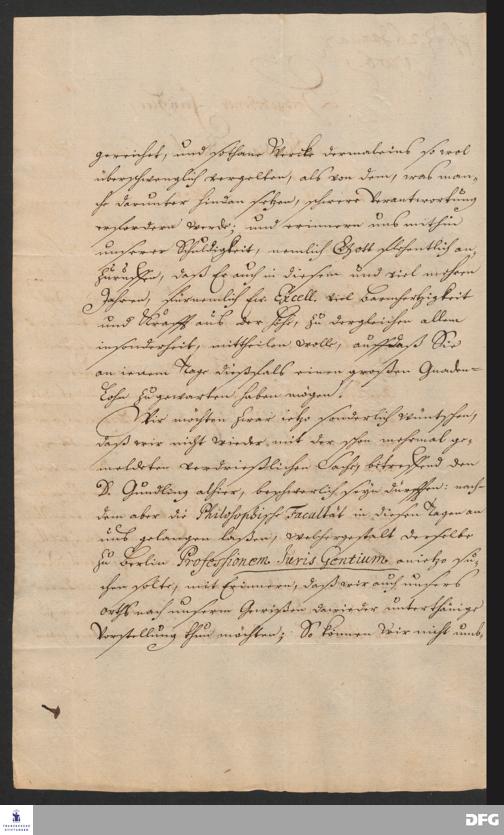 gereichet, und sothane Wercke dermaleins so wol
überschwenglich vergelten, als von dem, was man-
che darunter hindan setzen, schwere Verantwortung
erfordern werde; und erinnern uns mithin
unserer Schuldigkeit, nemlich Gott flehentlich an-
zuruffen, daß Er auch in diesem und viel mehrern
Jahren, fürnemlich Ew. Excell. viel Barmhertzigkeit
und Krafft aus der Höhe, zu dergleichen allem
insonderheit, mittheilen wolle, auff daß Sie
an jenem Tage dießfals einen großen Gnaden-
Lohn zugewarten haben mögen!
Wir möchten zwar ietzo sonderlich wüntschen,
daß wir nicht wieder mit der schon mehrmal ge-
meldeten verdrießlichen Sache, betreffend den
D. Gundling alhier, beschwerlich seyn dürfften: nach-
dem aber die Philosophische Facultät in diesen Tagen an
uns gelangen laßen, welchergestalt derselbe
zu Berlin Professionem Juris Gentium anietzo su-
chen solte, mit Erinnern, daß wir auch unsers
Orths nach unserm Gewißen dawieder unterthänige
Vorstellung thun möchten; So können wir nicht umb,
FRANCKESCHE
STIFTUNGEN
DFG